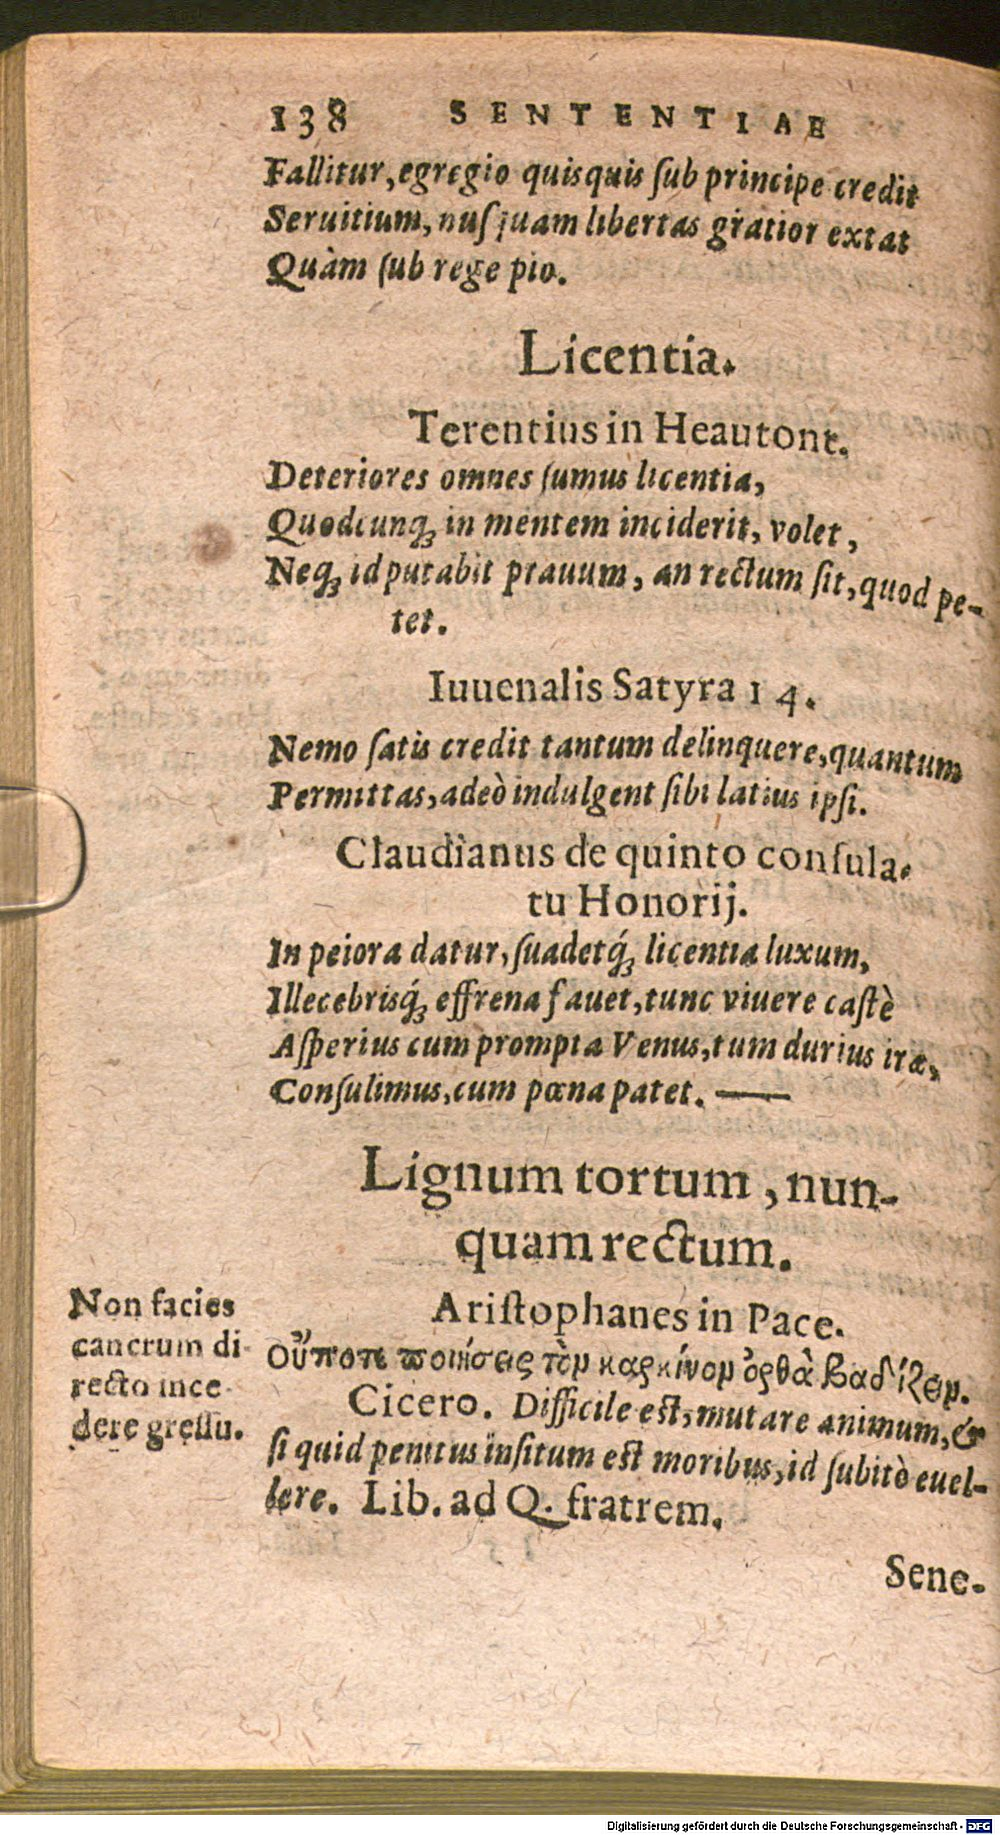 138 SENTENTIAE
Fallitur, egregio quisquis ſub principe credit
Seruitium, nuſquam libertas gratior extat
Quàm ſub rege pio.
Licentia.
Terentius in Heautont.
Deteriores omnes ſumus licentia,
Quodcunq́ꝫ in mentem inciderit, volet,
Neq́ꝫ id putabit prauum, an rectum ſit, quod pe-
tet.
Iuuenalis Satyra 14.
Nemo ſatis credit tantum delinquere, quantum
Permittas, adeò indulgent ſibi latius ipſi.
Claudianus de quinto conſula-
tu Honorij.
In peiora datur, ſuadetq́ꝫ licentia luxum,
Illecebrisq́ꝫ effrena fauet, tunc viuere caſtè
Aſperius cum prompta Venus, tum durius iræ,
Conſulimus, cum pœna patet. ——
Lignum tortum, nun-
quam rectum.
Non facies
cancrum di-
recto ince-
dere greſſu.
Ariſtophanes in Pace.
Οὔποτε ποιήσεις τὸν καρκίνον ὀρθὰ βαδίζειν.
Cicero. Difficile eſt, mutare animum, &
ſi quid penitus inſitum eſt moribus, id ſubitò euel-
lere. Lib. ad Q. fratrem.
Sene-
Digitalisierung gefördert durch die Deutsche Forschungsgemeinschaft - DFG